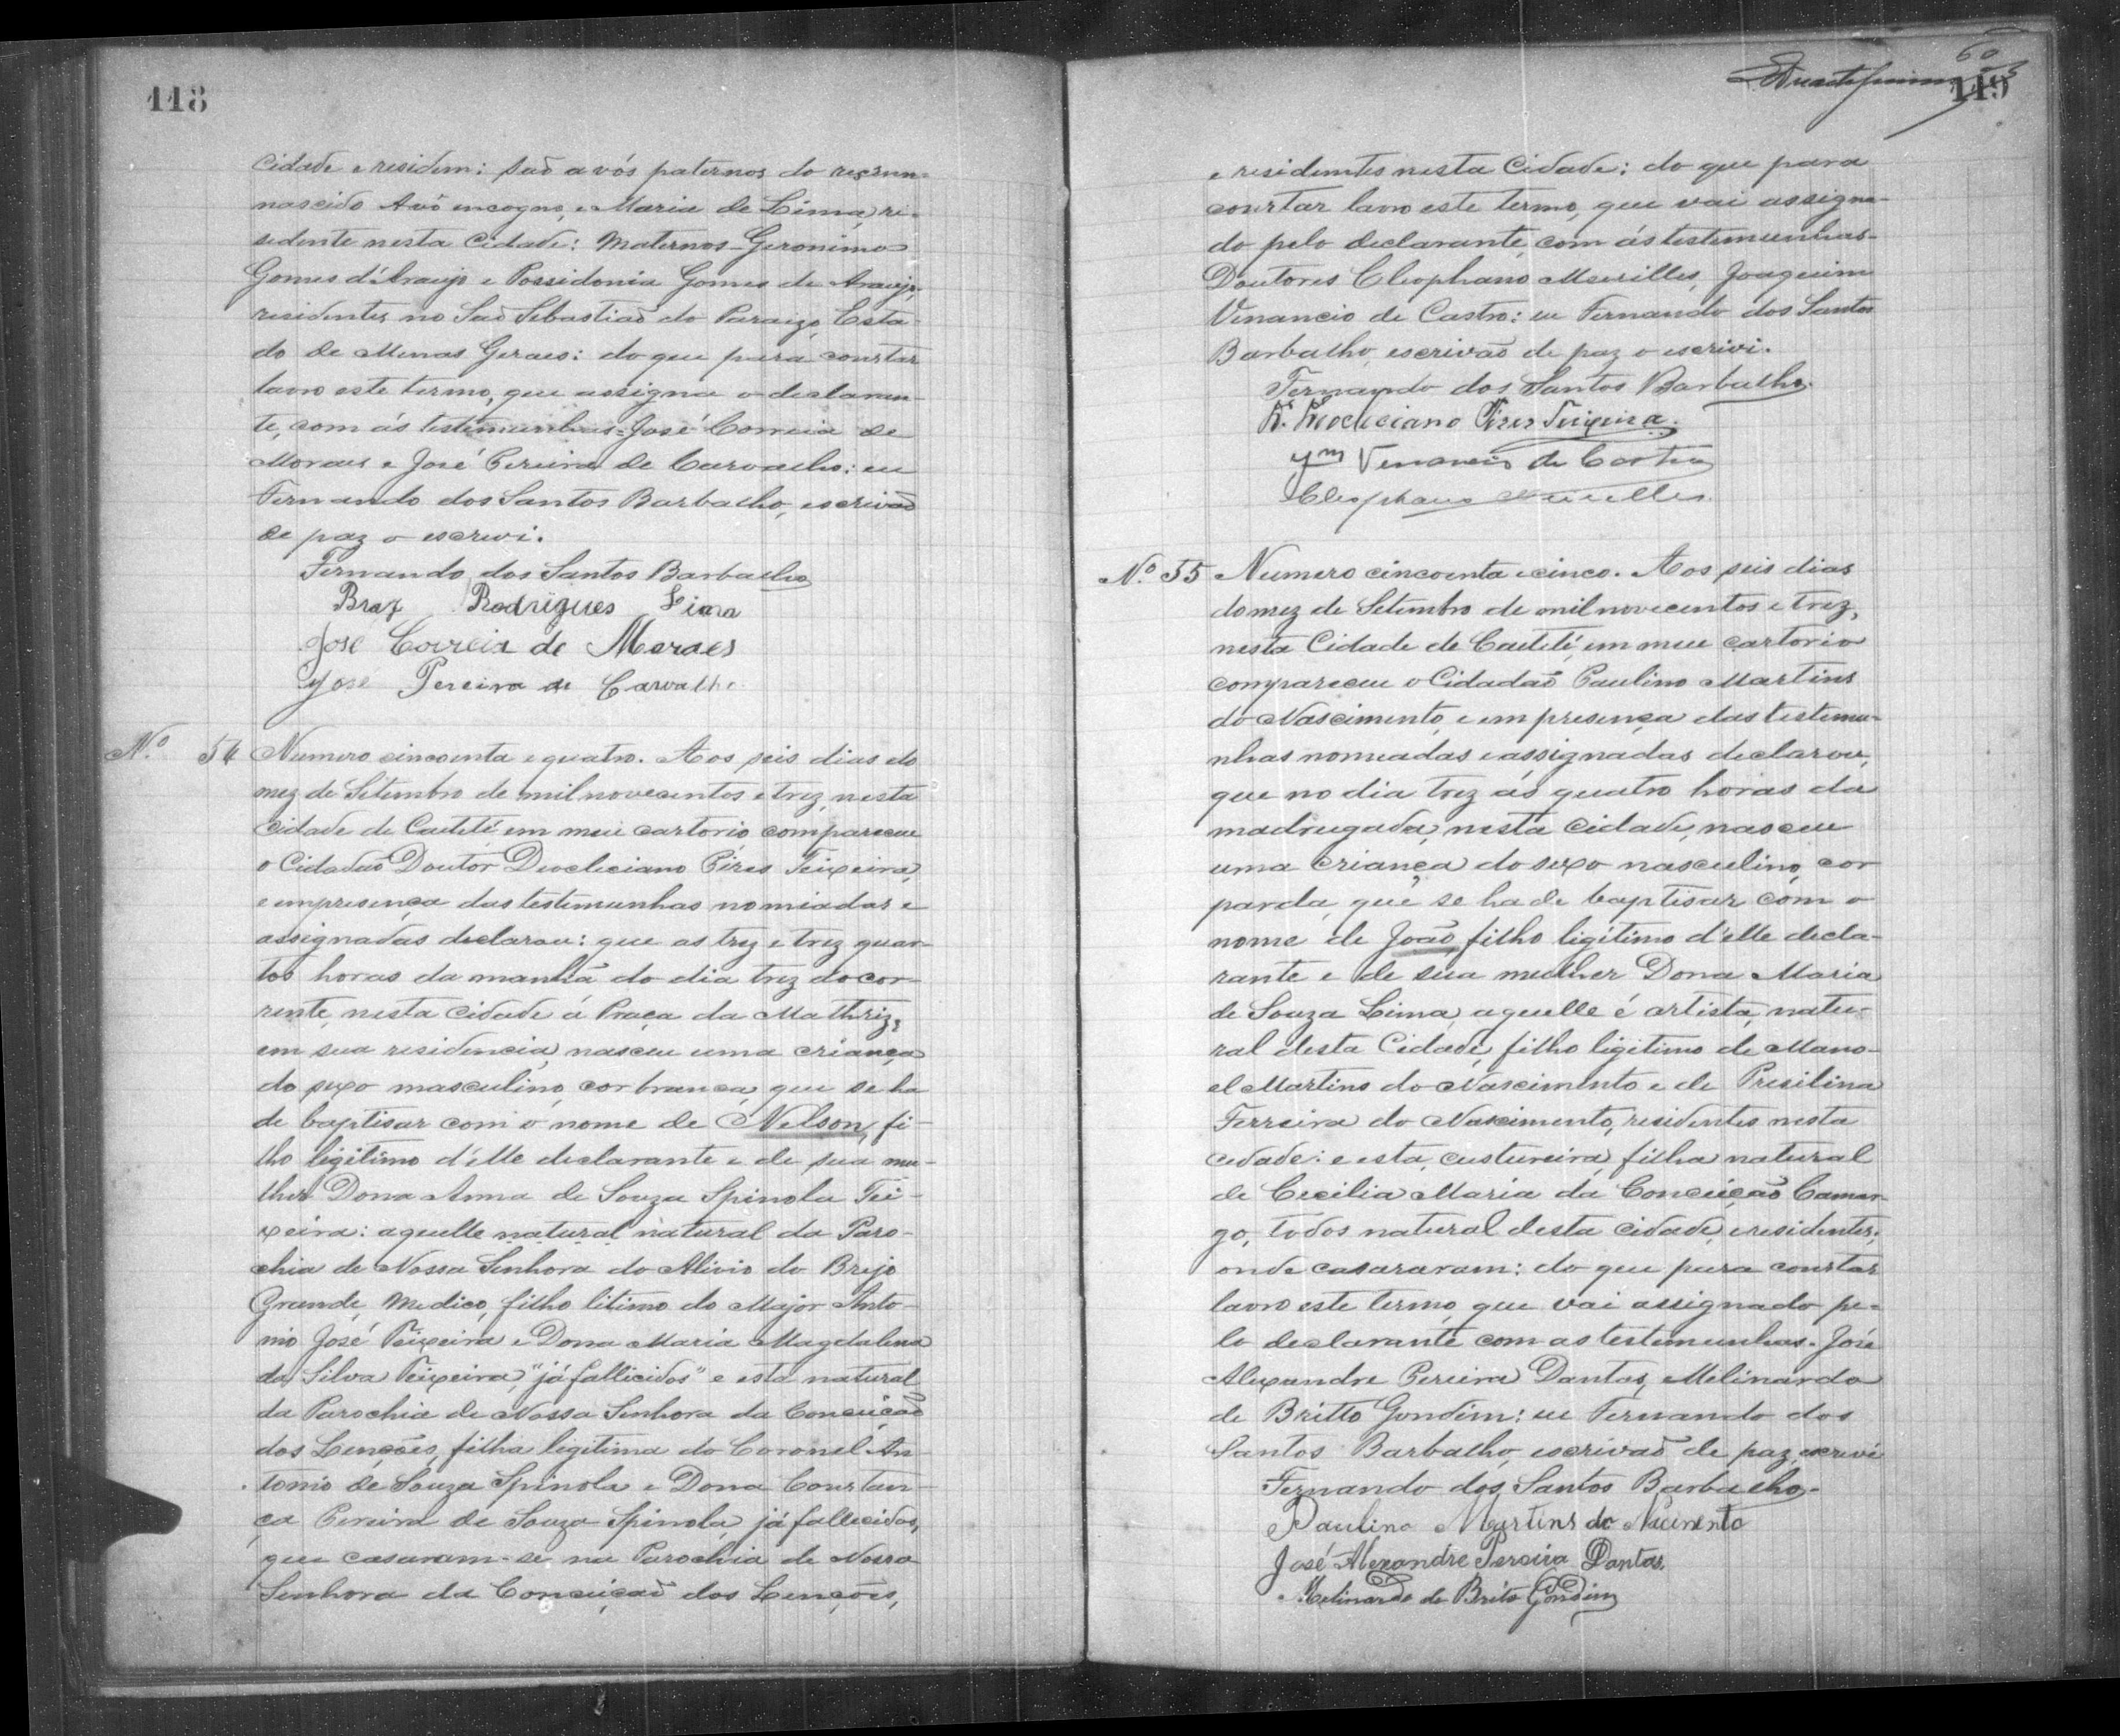 118
Cidade e residem: saõ avós paternos do recem-
nascido Avô encogno, e Maria de Lima, re-
sidente nesta Cidade: Maternos Geronimo
Gomes d'Araujo e Possidonia Gomes de Araujo,
residentes no Saõ Sebastiaõ do Paraizo, Esta-
do de Minas Geraes: do que para constar
lavro este termo, que assigna o declaran-
te, com ás testemunhas = José Correia de
Moraes e José Pereira de Carvalho: eu
Fernando dos Santos Barbalho, escrivaõ
de paz o escrevi.
Fernando dos Santos Barbalho
Braz Rodrigues Lima
José Correia de Moraes
José Pereira de Carvalho
Nº 54 Numero cincoenta e quatro. Aos seis dias do
mez de Setembro de mil novecentos e trez, nesta
Cidade de Caeteté em meu cartorio compareceu
o Cidadaõ Doutor Deocleciano Pires Teixeira,
e em presença das testemunhas nomiadas e
assignadas declarou: que as trez e trez quar-
tos horas da manhã do dia trez do cor-
rente, nesta Cidade á Praça da Mathriz,
em sua residencia, nasceu uma criança
do sexo masculino, cor branca, que se ha
de baptisar com o nome de Nelson, fi-
lho ligitimo d'elle declarante e de sua mu-
lher Dona Anna de Souza Spinola Tei-
xeira: aquelle natural natural da Paro-
chia de Nossa Senhora do Alivio do Brejo
Grande, Medico, filho litimo do Major Anto-
nio José Teixeira e Dona Maria Magdalena
da Silva Teixeira, "já fallicidos" e esta natural
da Parochia de Nossa Senhora da Conceiçaõ
dos Lençóes, filha legitima do Coronel An-
tonio de Souza Spinola e Dona Constan-
ça Pereira de Souza Spinola, já fallecidos,
que casaram-se na Parochia de Nossa
Senhora da Conceiçaõ dos Lençóes,
60
119
e residentes nesta Cidade: do que para
constar lavro este termo, que vai assigna-
do pelo declarante, com ás testemunhas
Doutores Cleophano Meirelles, Joaquim
Venancio de Castro: eu Fernando dos Santos
Barbalho, escrivaõ de paz o escrivi.
Fernando dos Santos Barbalho.
Dr. Deocleciano Pires Teixeira.
Jm Venancio de Castro
Cleophano Meirelles
Nº 55 Numero cincoenta e cinco. Aos seis dias
do mez de Setembro de mil novecentos e trez,
nesta Cidade de Caeteté, em meu cartorio
compareceu o Cidadaõ Paulino Martins
do Nascimento, e em presença das testemu-
nhas nomeadas e assignadas declarou,
que no dia trez ás quatro horas da
madrugada, nesta Cidade, nasceu
uma criança do sexo nasculino, cor
parda, que se ha de baptisar com o
nome de Joaõ, filho ligitimo d'elle decla-
rante e de sua mulher Dona Maria
de Souza Lima, aquelle é artista, natu-
ral desta Cidade, filho ligitimo de Mano-
el Martins do Nascimento e de Presilina
Ferreira do Nascimento, residentes nesta
cidade: e esta, custureira, filha natural
de Cecilia Maria da Conceiçaõ Camar-
go, todos natural desta cidade, e residentes,
onde casararam: do que para constar
lavro este termo, que vai assignado pe-
lo declarante com as testemunhas. José
Alexandre Pereira Dantas, Melinardo
de Britto Gondim: eu Fernando dos
Santos Barbalho, escrivaõ de paz, escrevi
Fernando dos Santos Barbalho.
Paulino Martins do Nacimento
José Alexandre Pereira Dantas.
Melinardo de Brito Gondim